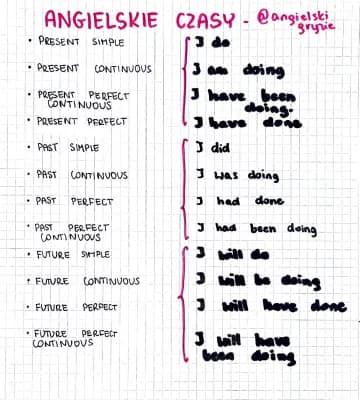 ANGIELSKIE CZASY - @angielski
gryzie
• PRESENT SIMPLE I do
• PRESENT CONTINUOUS I am doing
• PRESENT PERFECT CONTINUOUS I have been doing.
• PRESENT PERFECT I have done
• PAST SIMPLE I did
• PAST CONTINUOUS I was doing
• PAST PERFECT I had done
• PAST PERFECT CONTINUOUS I had been doing
• FUTURE SIMPLE I will do
• FUTURE CONTINUOUS I will be doing
• FUTURE PERFECT I will have done
• FUTURE PERFECT CONTINUOUS I will have been doing